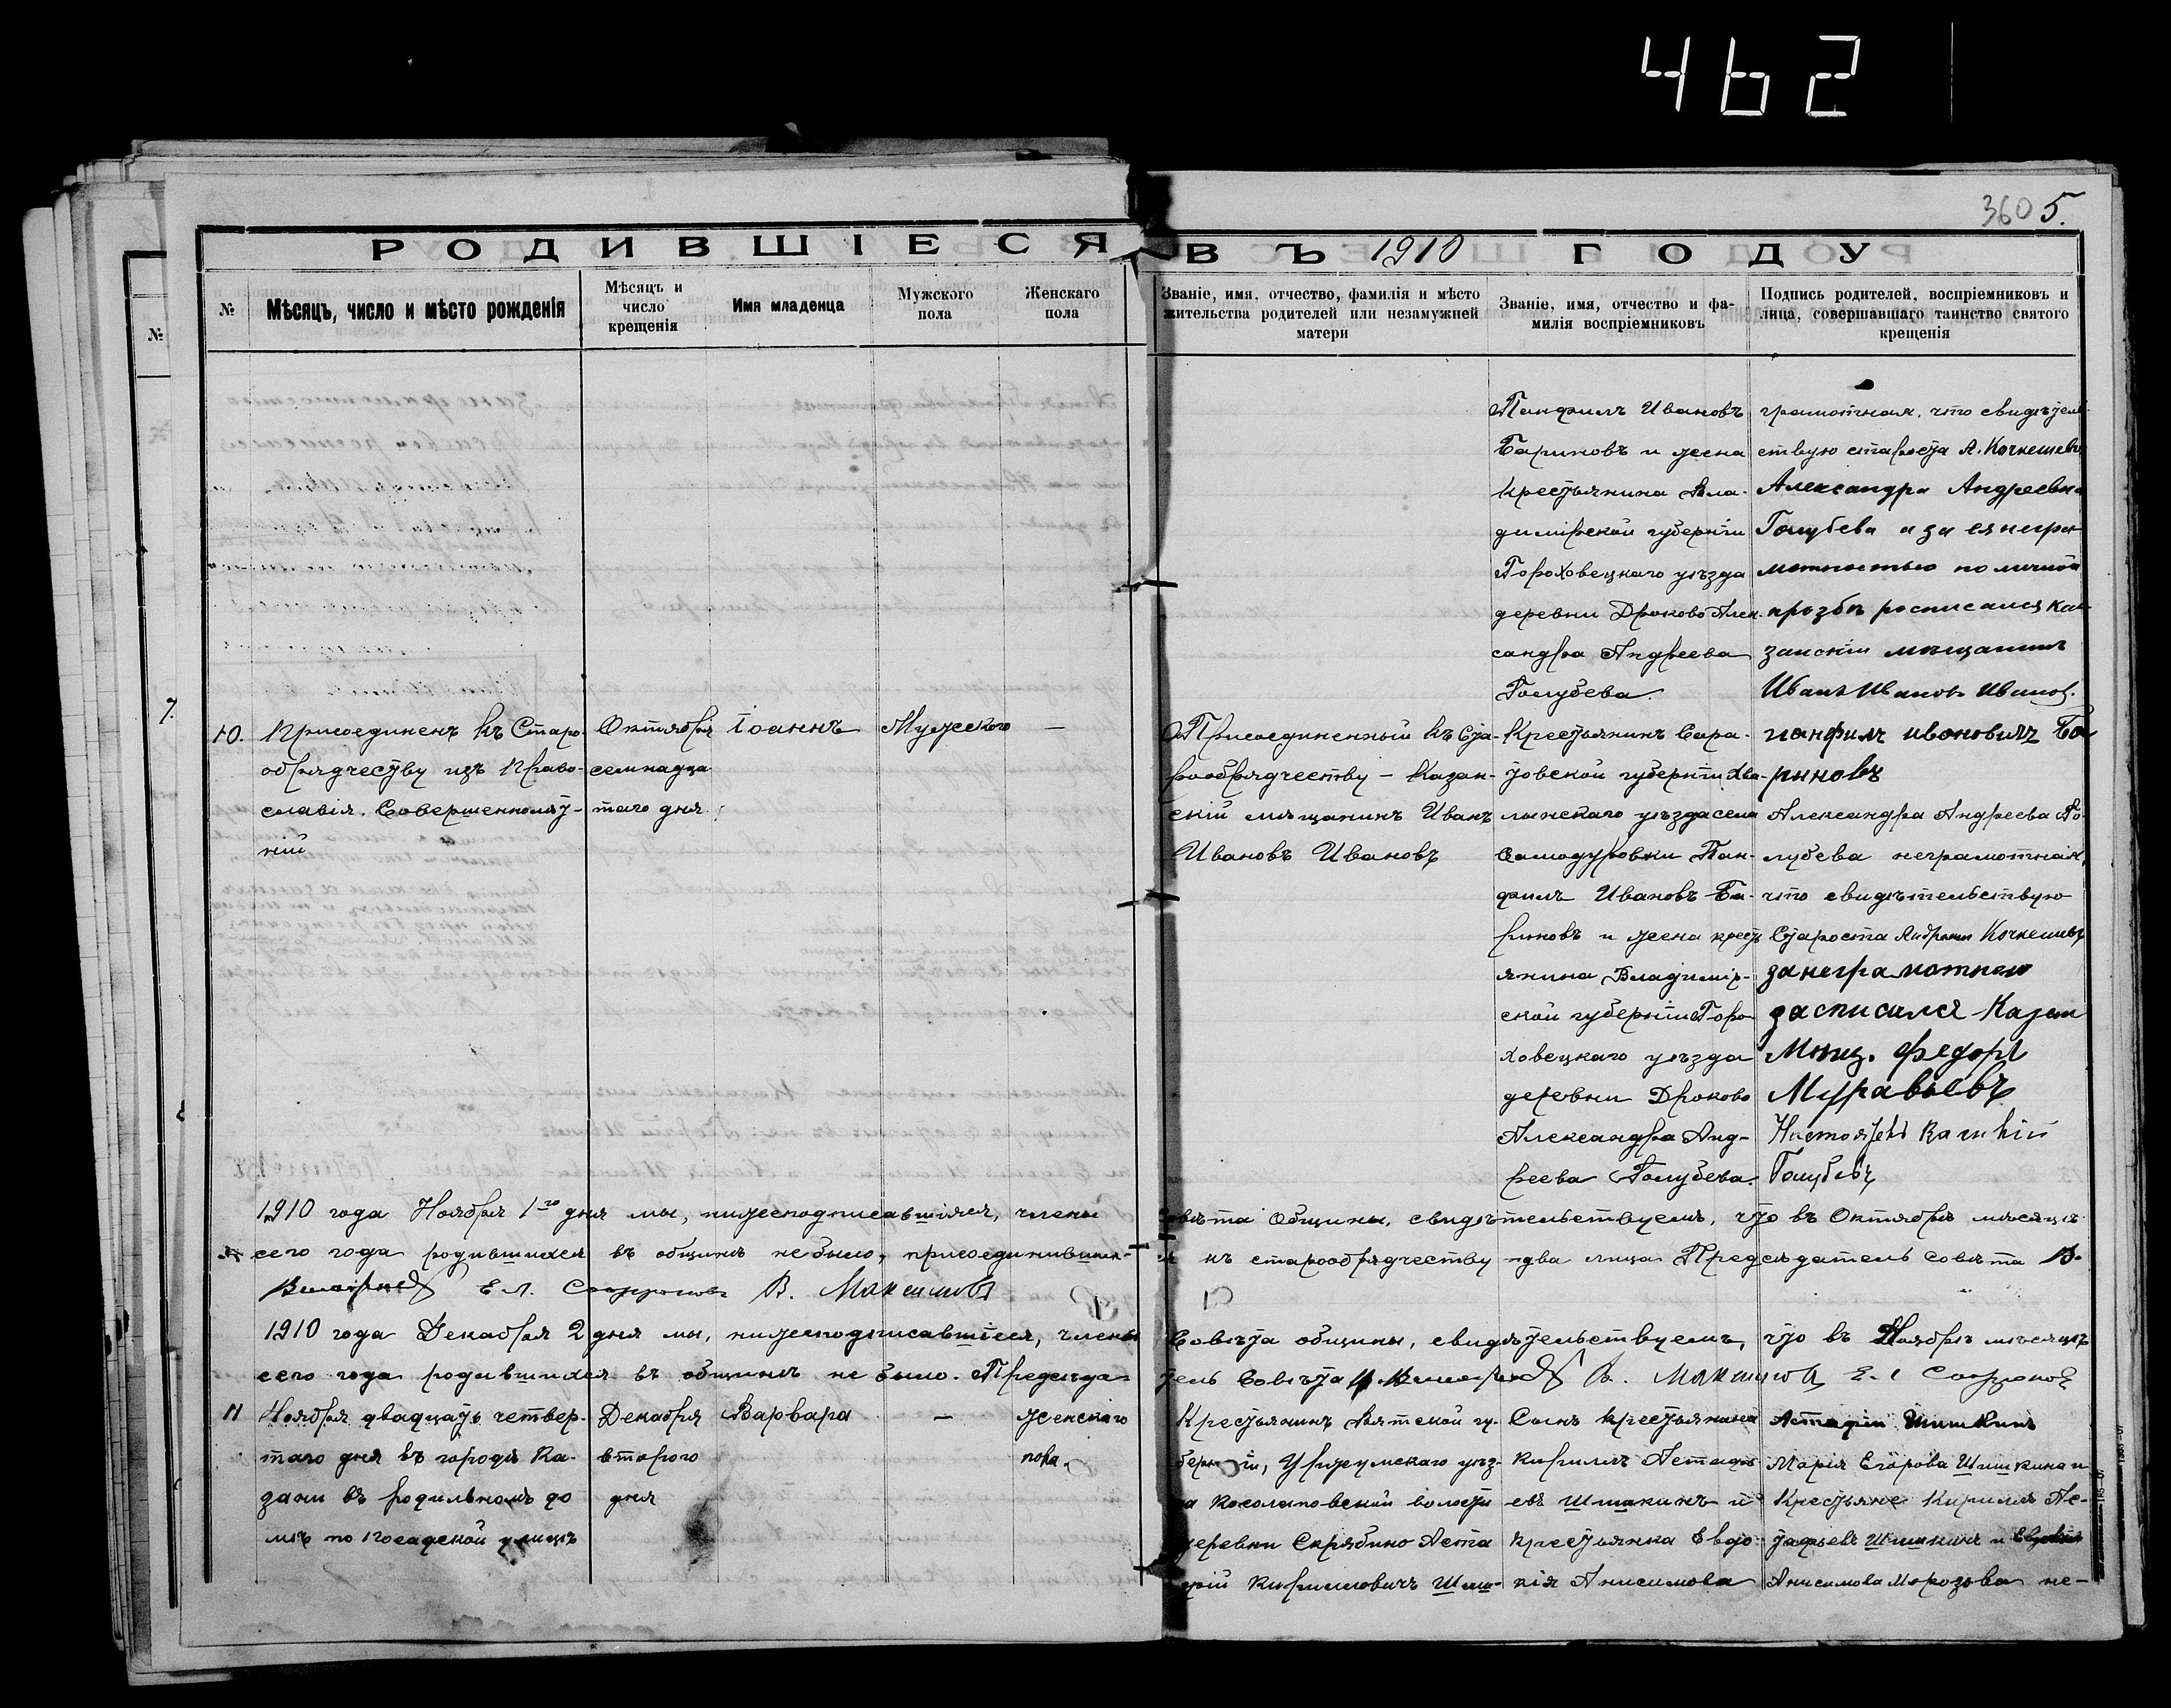 462
360 5.
РОДИВШІЕСЯ ВЪ 1910 ГОДУ
№
№
Мѣсяцъ, число и мѣсто рожденія
Мѣсяцъ и
число
крещенія
Имя младенца
Мужского
пола
Женскаго
пола
Званіе, имя, отчество, фамилія и мѣсто
жительства родителей или незамужней
матери
Званіе, имя, отчество и фа-
милія воспріемниковъ
Подпись родителей, воспріемниковъ и
лица, совершавшаго таинство святого
крещенія
Панфилъ Ивановъ
Бариновъ и жена
крестьянина Вла-
димірской губерніи
Гороховецкаго уѣзда
деревни Дроково Алек-
сандра Андреева
Голубева.
грамотная, что свидѣтель
ствую староста А. Кочкешевъ
Александра Андреевна
Голубева а за ея негра
мотностью по личной
прозбѣ росписался Ка
занскій мѣщанинъ
Иванъ Ивановъ Ивановъ.
7.
10.
Присоединенъ къ Старо-
обрядчеству изъ Право-
славія. Совершеннолѣт-
ній
Октября
семнадца-
таго дня
Іоаннъ
Мужского
—
Присоединенный къ Ста-
рообрядчеству – Казан-
скій мѣщанинъ Иванъ
Ивановъ Ивановъ
Крестьянинъ Сара-
товской губерніи Хва-
лынскаго уѣзда села
Самодуровки Пан-
филъ Ивановъ Ба-
риновъ и жена крест
янина Владимір-
ской губерніи Горо-
ховецкаго уѣзда
деревни Дроково
Александра Анд-
реева Голубева.
панфилъ ивоновичъ Ба
риновъ
Александра Андреева Го-
лубева неграмотная,
что свидѣтельствую
Староста Кочкешевъ
за неграмотною
засписался Казан
Мѣщ. Федоръ
Муравьевъ
Голубевъ
1910 года Ноября 1го дня мы, нижеподписавшіяся, члены совѣта Общины, свидѣтельствуемъ, что въ Октябрѣ мѣсяцѣ
сего года родившихся въ общинѣ не было, присоединивших-ся къ старообрядчеству – два лица Предсѣдатель совѣта В.
В. Максимовъ
1910 года Декабря 2 дня мы, нижеподписавшіеся, члены Совѣта общины, свидѣтельствуемъ, что въ Ноябрѣ мѣсяцѣ
сего года родившихся въ общинѣ не было. Предсѣда-тель Совѣта В. Максимовъ
11
Ноября двадцать четвер-
таго дня въ городѣ Ка-
зани въ родильномъ до
мѣ по Посадской улицѣ
Декабря
второго
дня
Варвара
—
женскаго
пола.
Крестьянинъ Вятской гу-
берніи, Уржумскаго уѣз-
да Косолаповской волости
деревни Скрябино Аста
фій Кирилловичъ Шиш-
Сынъ крестьянина
Кириллъ Астафь
евъ Шишкинъ и
крестьянка Евдо-
кія Анисимова
Астафій Шишкинъ
Марія Егорова Шишкина и
Крестьяне Кириллъ Ас-
тафьевъ Шишкинъ и Евдокія
Анисимова Морозова не-